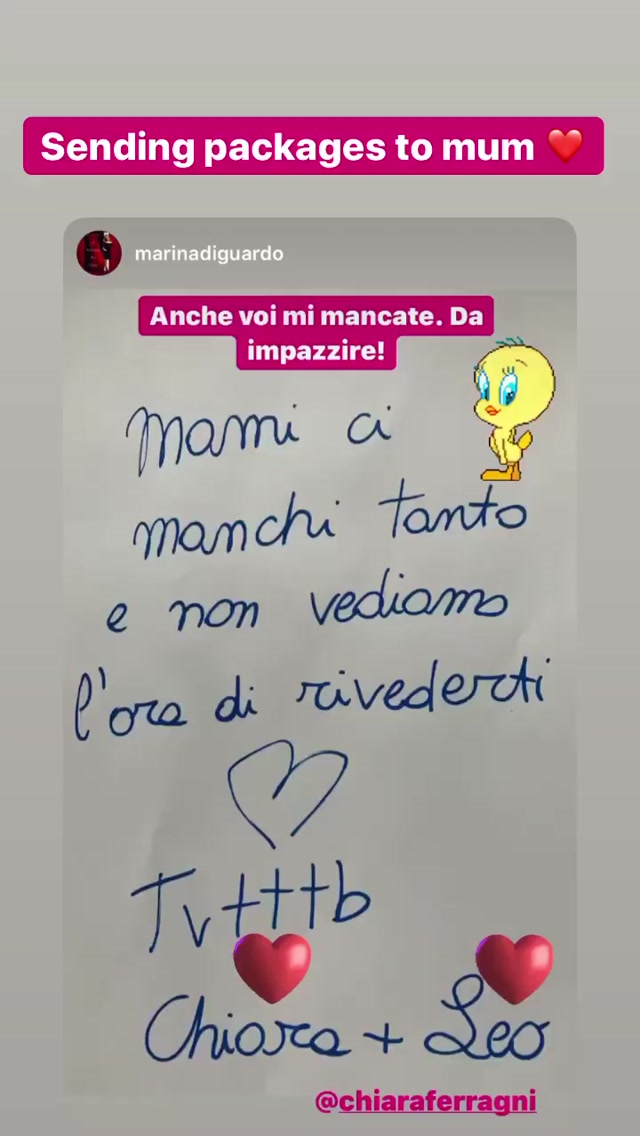 Sending packages to mum ❤️
marinadiguardo
Anche voi mi mancate. Da
impazzire!
Mami ci
manchi tanto
e non vediamo
l'ora di rivederti
Tvtttb
Chiara + Leo
@chiaraferragni